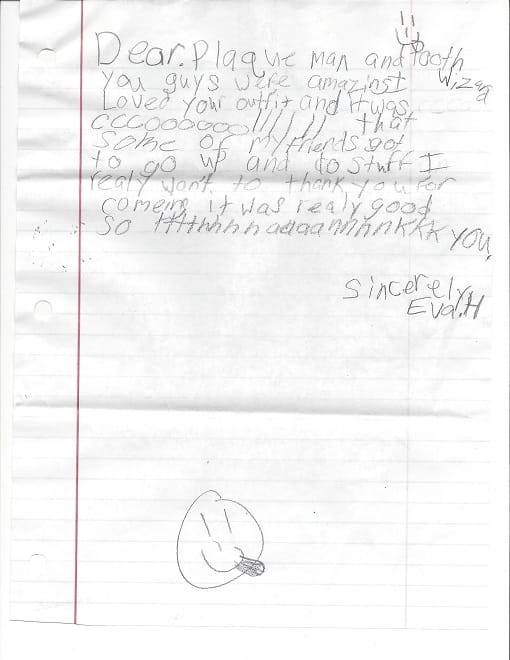 Dear. Plaque man and Tooth
Wizard
you guys were amazinst
Loved your outfit and it was
cccooooooollllll that
some of my friends got
to go up and do stuff I
realy want to thank you for
comeing it was realy good
so ttttthhhnaaaannnnkkk you,
Sincerely,
Eva.H